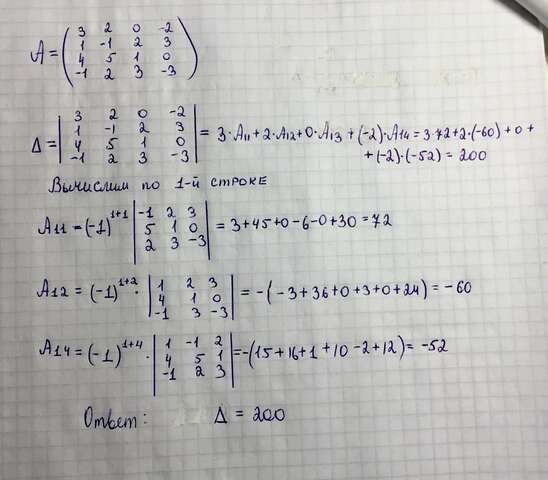 A = ( 3 2 0 -2
1 -1 2 3
4 5 1 0
-1 2 3 -3 )
Δ = | 3 2 0 -2
1 -1 2 3
4 5 1 0
-1 2 3 -3 | = 3·A11+2·A12+0·A13+(-2)·A14=3·72+2·(-60)+0+
+(-2)·(-52)=200
Вычислим по 1-й строке
A11=(-1)^1+1 | -1 2 3
5 1 0
2 3 -3 | = 3+45+0-6-0+30=72
A12=(-1)^1+2 · | 1 2 3
4 1 0
-1 3 -3 | = -(-3+36+0+3+0+24)= -60
A14=(-1)^1+4 · | 1 -1 2
4 5 1
-1 2 3 | =-(15+16+1+10-2+12)= -52
Ответ: Δ = 200